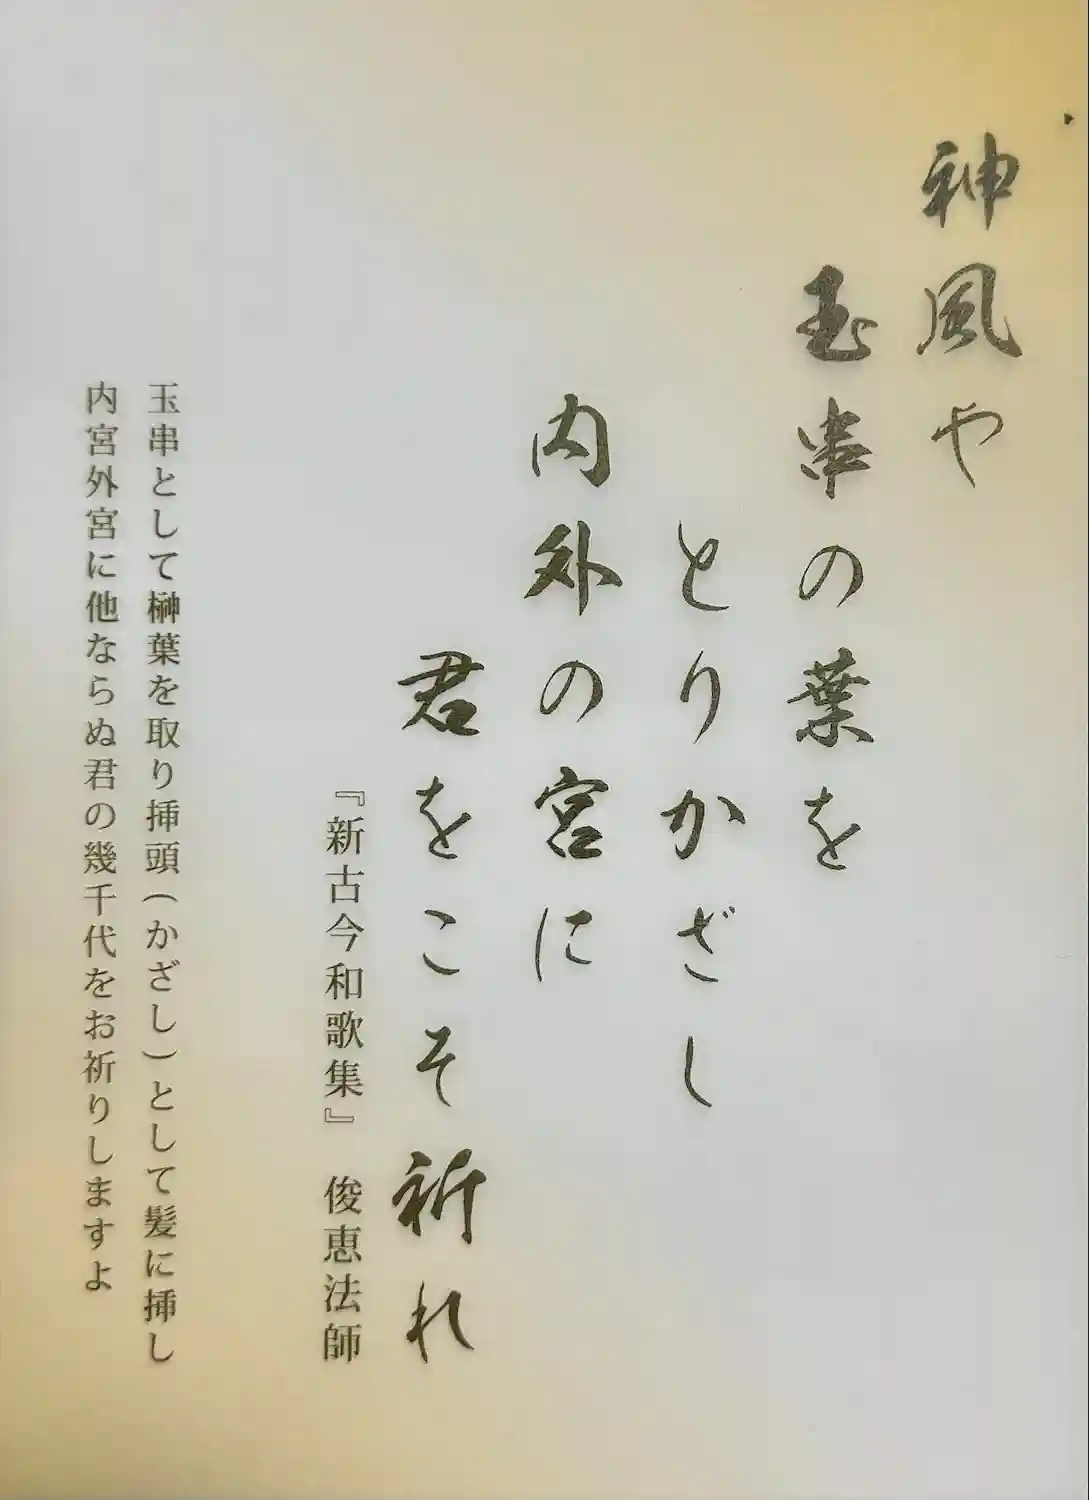 神風や
玉串の葉を
とりかざし
内外の宮に
君をこそ祈れ
『新古今和歌集』　俊恵法師
玉串として榊葉を取り挿頭(かざし)として髪に挿し
内宮外宮に他ならぬ君の幾千代をお祈りしますよ